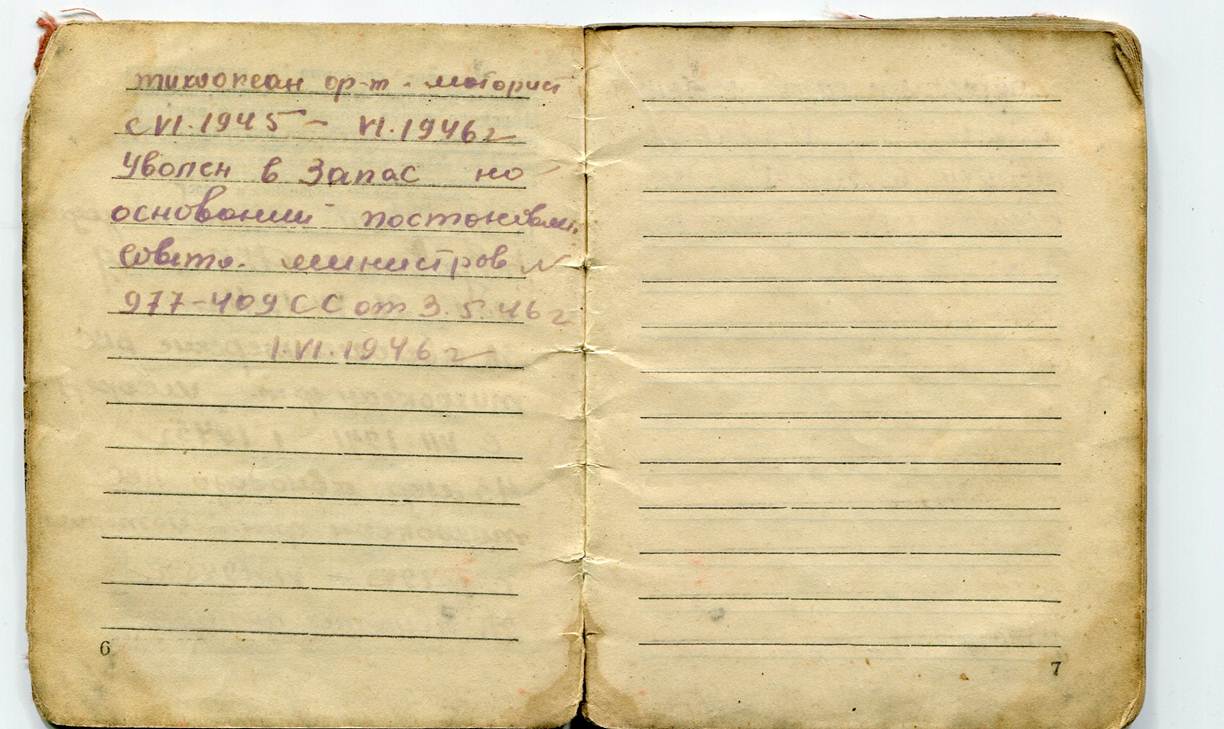 тихоокеан ор-т - моторист
с VI.1945 - VI.1946 г
Уволен в Запас но
основонии постоновлен.
Совета министров №
977-409СС от 3.5.46 г
1.VI.1946 г
6
7